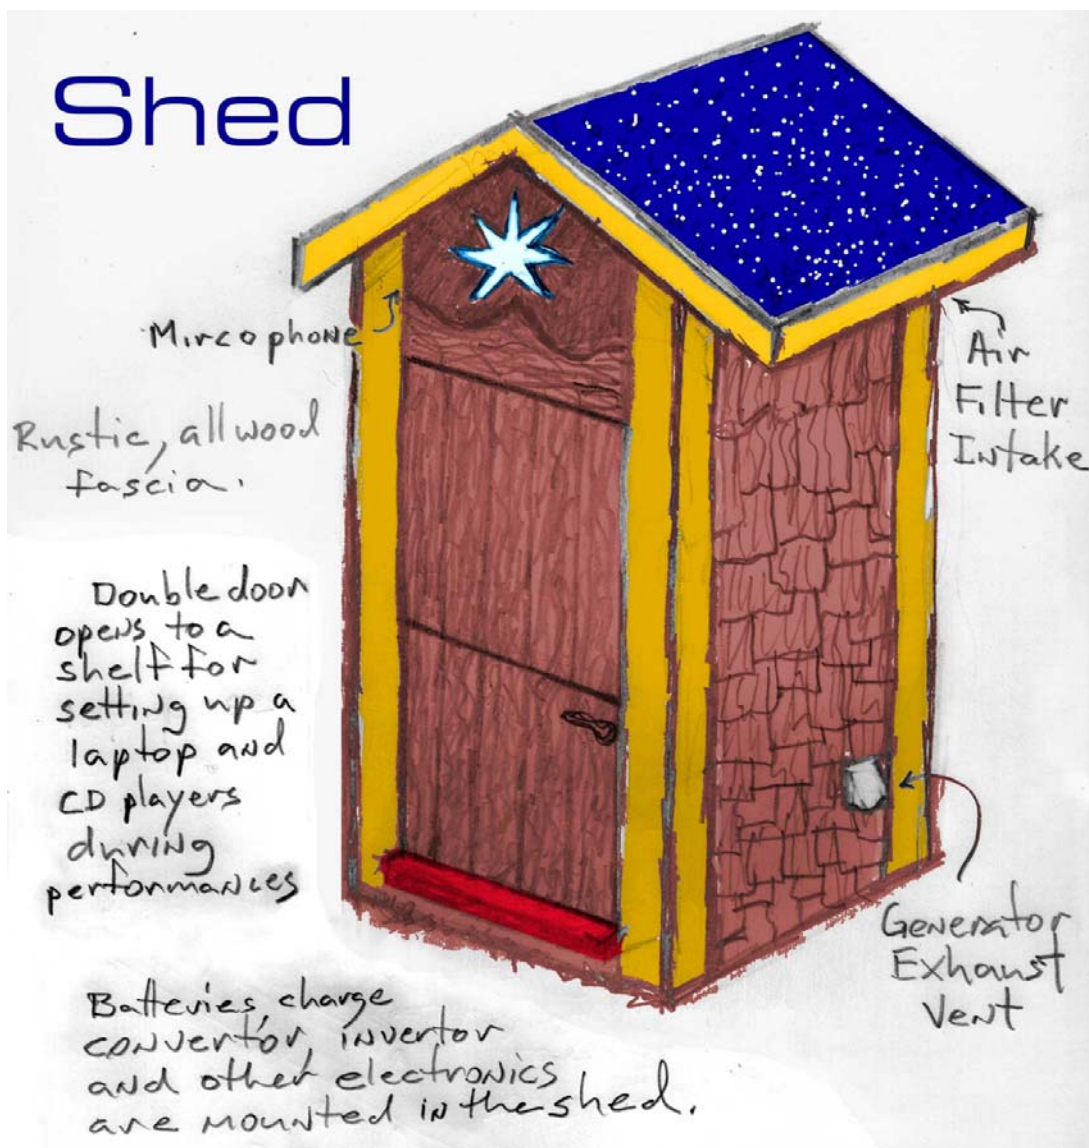 Shed
Mircophone
Rustic, all wood
fascia.
Air
Filter
Intake
Double door
opens to a
shelf for
setting up a
laptop and
CD players
during
performances
Generator
Exhaust
Vent
Batteries, charge
convertor, invertor
and other electronics
are mounted in the shed.